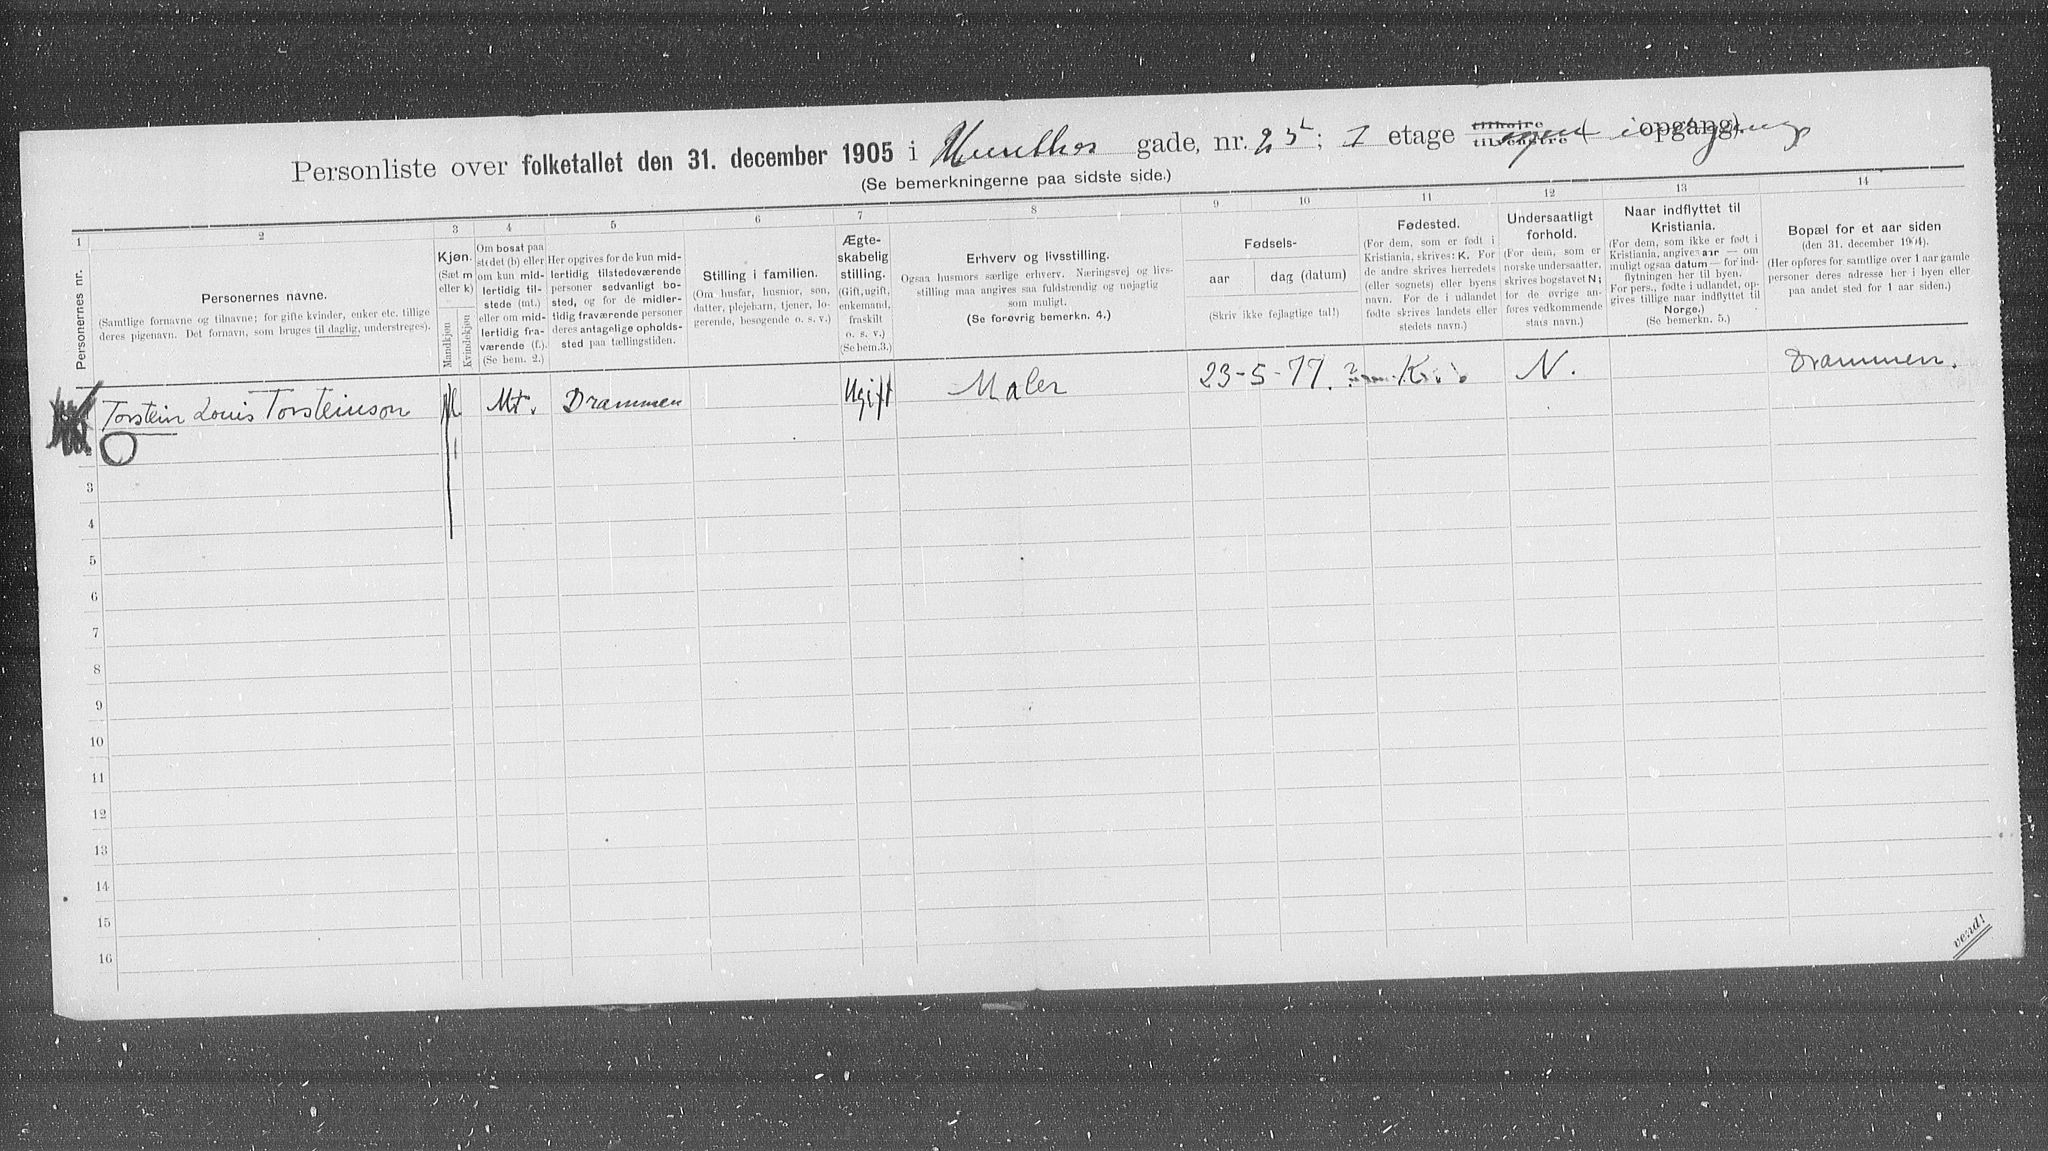 Personliste over folketallet den 31. december 1905 i Munthes gade, nr. 23 L; 1 etage tilhøire tilvenstre opgang).
(Se bemerkningerne paa sidste side.)
1 2 3 4 5 6 7 8 9 10 11 12 13 14
Personernes nr.
Personernes navne.
(Samtlige fornavne og tilnavne; for gifte kvinder, enker etc. tillige
deres pigenavn. Det fornavn, som bruges til daglig, understreges).
Kjøn.
(Sæt m
eller k)
Mandkjøn
Kvindekjøn
Om bosat paa
stedet (b) eller
om kun mid-
lertidig til-
stede (mt.)
eller om mid-
lertidig fra-
værende (f.).
(Se bem. 2.)
Her opgives for de kun mid-
lertidig tilstedeværende
personer sedvanligt bo-
sted, og for de midler-
tidig fraværende personer
deres antagelige opholds-
sted paa tællingstiden.
Stilling i familien.
(Om husfar, husmor, søn,
datter, plejebarn, tjener, lo-
gerende, besøgende o. s. v.)
Ægte-
skabelig
stilling.
(Gift, ugift,
enkemand,
fraskilt
o. s. v.)
(Se bem.3.)
Erhverv og livsstilling.
Ogsaa husmors særlige erhverv. Næringsvej og livs-
stilling maa angives saa fuldstændig og nøjagtig
som muligt.
(Se forøvrig bemerkn. 4.)
Fødsels-
aar
dag (datum)
(Skriv ikke fejlagtige tal!)
Fødested.
(For dem, som er født i
Kristiania, skrives: K. For
de andre skrives herredets
(eller sognets) eller byens
navn. For de i udlandet
fødte skrives landets eller
stedets navn.)
Undersaatligt
forhold.
(For dem, som er
norske undersaatter,
skrives bogstavet N;
for de øvrige an-
føres vedkommende
stats navn.)
Naar indflyttet til
Kristiania.
(For dem, som ikke er født i
Kristiania, angives aar — om
muligt ogsaa datum — for ind-
flytningen her til byen.
For pers., fødte i udlandet, op-
gives tillige naar indflyttet til
Norge.)
(Se bemerkn. 5.)
Bopæl for et aar siden
(den 31. december 1904).
(Her opføres for samtlige over 1 aar gamle
personer deres adresse her i byen eller
paa andet sted for 1 aar siden.)
Torstein Louis Torsteinson Mt. Drammen Ugift Maler 23-5-77. N. Drammen.
2
3
4
5
6
7
8
9
10
11
12
13
14
15
16
vend!